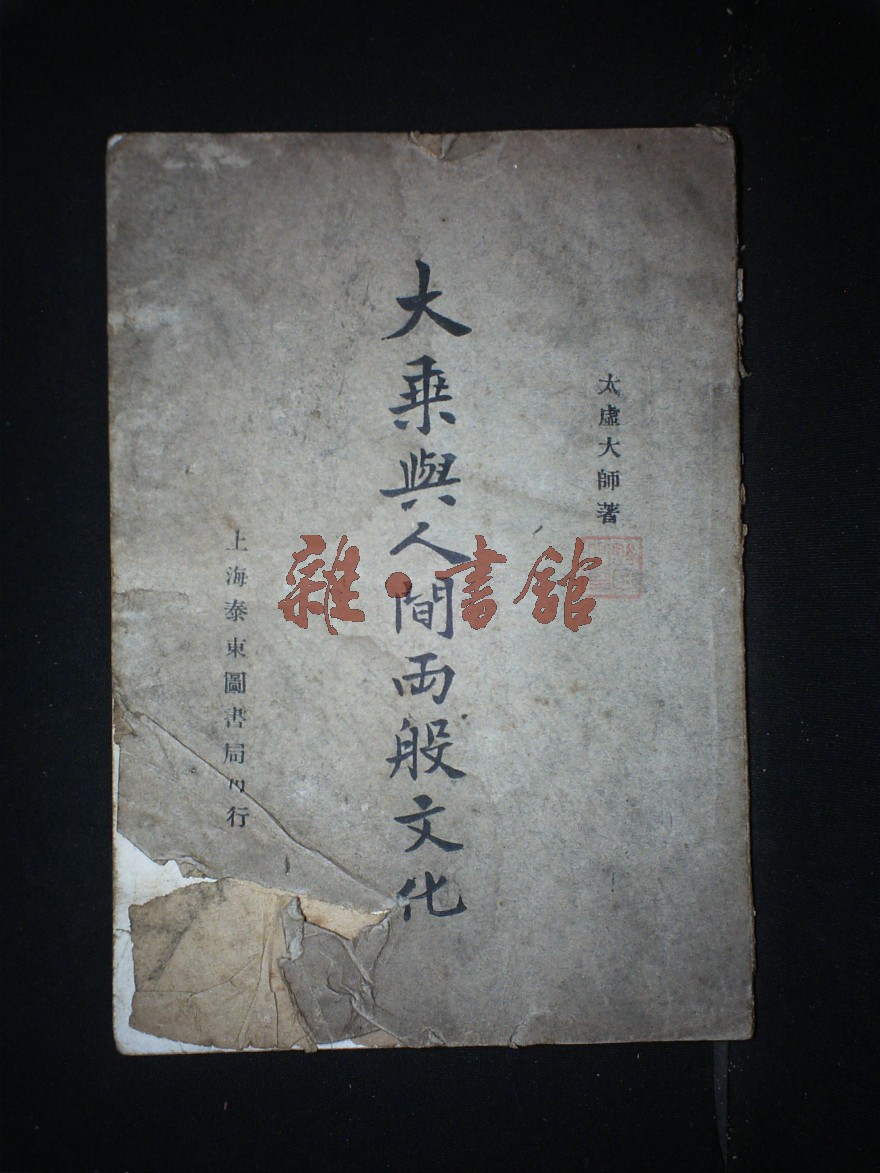 太虛大師著
大乗與人間两般文化
上海泰東圖書局印行
雜·書館